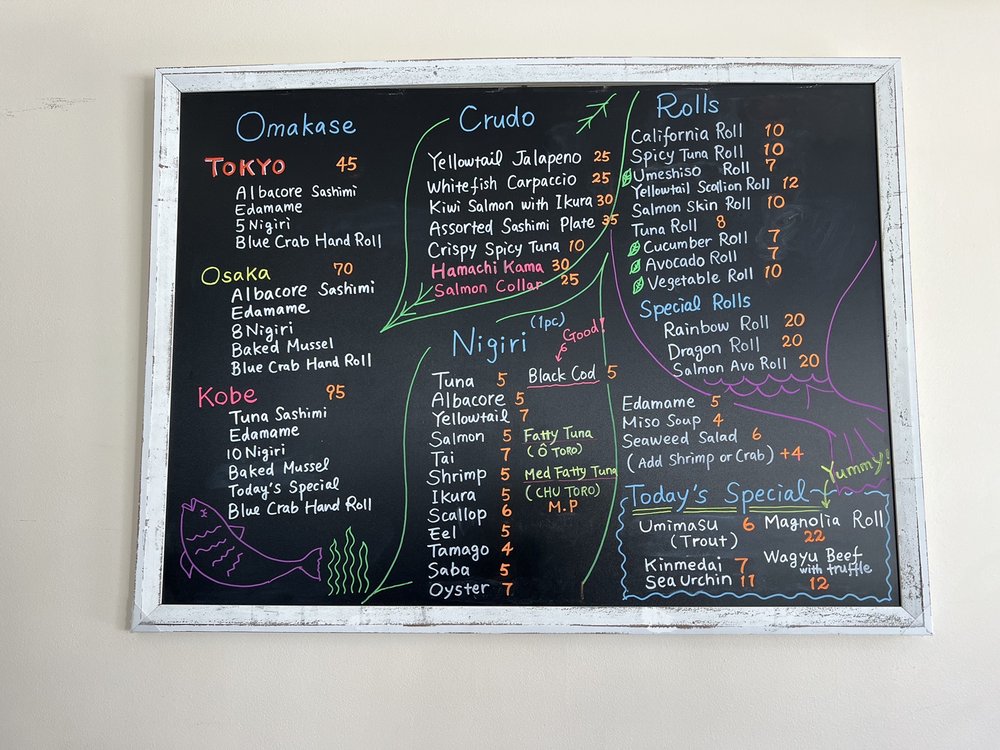 Omakase
TOKYO 45
Albacore Sashimi
Edamame
5 Nigiri
Blue Crab Hand Roll
Osaka 70
Albacore Sashimi
Edamame
8 Nigiri
Baked Mussel
Blue Crab Hand Roll
Kobe 95
Tuna Sashimi
Edamame
10 Nigiri
Baked Mussel
Today's Special
Blue Crab Hand Roll
Crudo
Yellowtail Jalapeno 25
Whitefish Carpaccio 25
Kiwi Salmon with Ikura 30
Assorted Sashimi Plate 35
Crispy Spicy Tuna 10
Hamachi Kama 30
Salmon Collar 25
Nigiri (1pc)
Good!
Black Cod 5
Tuna 5
Albacore 5
Yellowtail 7
Salmon 5
Tai 7
Shrimp 5
Ikura 5
Scallop 6
Eel 5
Tamago 4
Saba 5
Oyster 7
Fatty Tuna
(Ō TORO)
Med Fatty Tuna
(CHU TORO)
M.P
Rolls
California Roll 10
Spicy Tuna Roll 10
Umeshiso Roll 7
Yellowtail Scallion Roll 12
Salmon Skin Roll 10
Tuna Roll 8
Cucumber Roll 7
Avocado Roll 7
Vegetable Roll 10
Special Rolls
Rainbow Roll 20
Dragon Roll 20
Salmon Avo Roll 20
Edamame 5
Miso Soup 4
Seaweed Salad 6
(Add Shrimp or Crab) +4
Yummy!
Today's Special
Umimasu 6
(Trout)
Kinmedai 7
Sea Urchin 11
Magnolia Roll
22
Wagyu Beef
with truffle
12